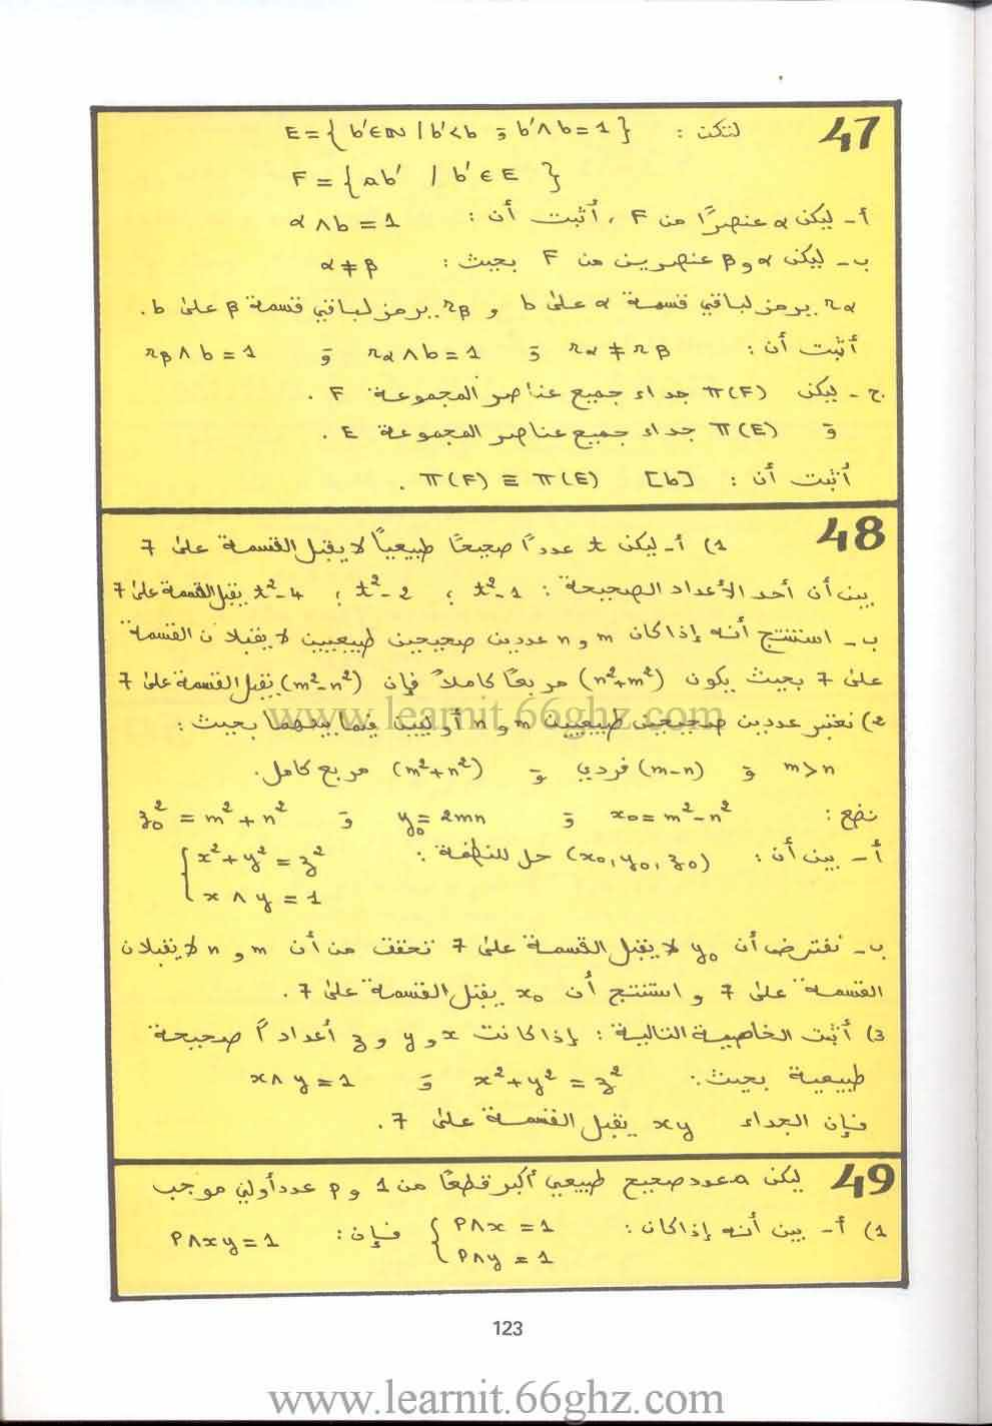 47 لتكن : E = { b' ∈ IN / b' < b و b' ∧ b = 1 }
F = { ab' / b' ∈ E }
أ - ليكن α عنصرًا من F ، أثبت أن : α ∧ b = 1
ب - ليكن α و β عنصرين من F بحيث : α ≠ β
rα يرمز لباقي قسمة α على b و rβ يرمز لباقي قسمة β على b .
أثبت أن : rα ≠ rβ و rα ∧ b = 1 و rβ ∧ b = 1
ج - ليكن π(F) جداء جميع عناصر المجموعة F .
و π(E) جداء جميع عناصر المجموعة E .
أثبت أن : π(F) ≡ π(E) [b] .
48 1) أ - ليكن t عددًا صحيحًا طبيعيًا لا يقبل القسمة على 7
بين أن أحد الأعداد الصحيحة : t²-1 ؛ t²-2 ؛ t²-4 يقبل القسمة على 7
ب - استنتج أنه إذا كان m و n عددين صحيحين طبيعيين لا يقبلان القسمة
على 7 بحيث يكون (n²+m²) مربعًا كاملاً فإن (m²-n²) تقبل القسمة على 7
2) نعتبر عددين صحيحين طبيعيين m و n أوليين فيما بينهما بحيث :
m > n و (m-n) فردي و (m²+n²) مربع كامل.
نضع : x₀ = m²-n² و y₀ = 2mn و z₀² = m²+n²
أ - بين أن : (x₀, y₀, z₀) حل للنظمة : { x²+y² = z²
x ∧ y = 1
ب - نفترض أن y₀ لا يقبل القسمة على 7 تحقق من أن m و n لا يقبلان
القسمة على 7 و استنتج أن x₀ يقبل القسمة على 7 .
3) أثبت الخاصية التالية : إذا كانت x و y و z أعدادًا صحيحة
طبيعية بحيث : x²+y² = z² و x ∧ y = 1
فإن الجداء xy يقبل القسمة على 7 .
49 ليكن a عدد صحيح طبيعي أكبر قطعًا من 1 و p عدد أولي موجب
1) أ - بين أنه إذا كان : { p∧x = 1 فإن : p∧xy = 1
p∧y = 1
123
www.learnit.66ghz.com
www.learnit.66ghz.com